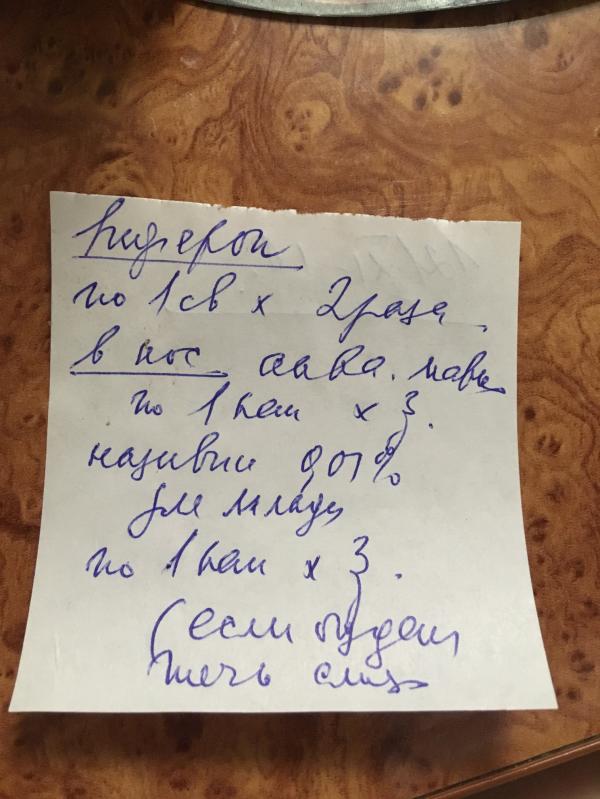 Виферон
по 1 св х 2 раза.
в нос аква. марис
по 1 кап х 3.
називин 0,01%
для младен
по 1 кап х 3.
(если будет
течь слизь